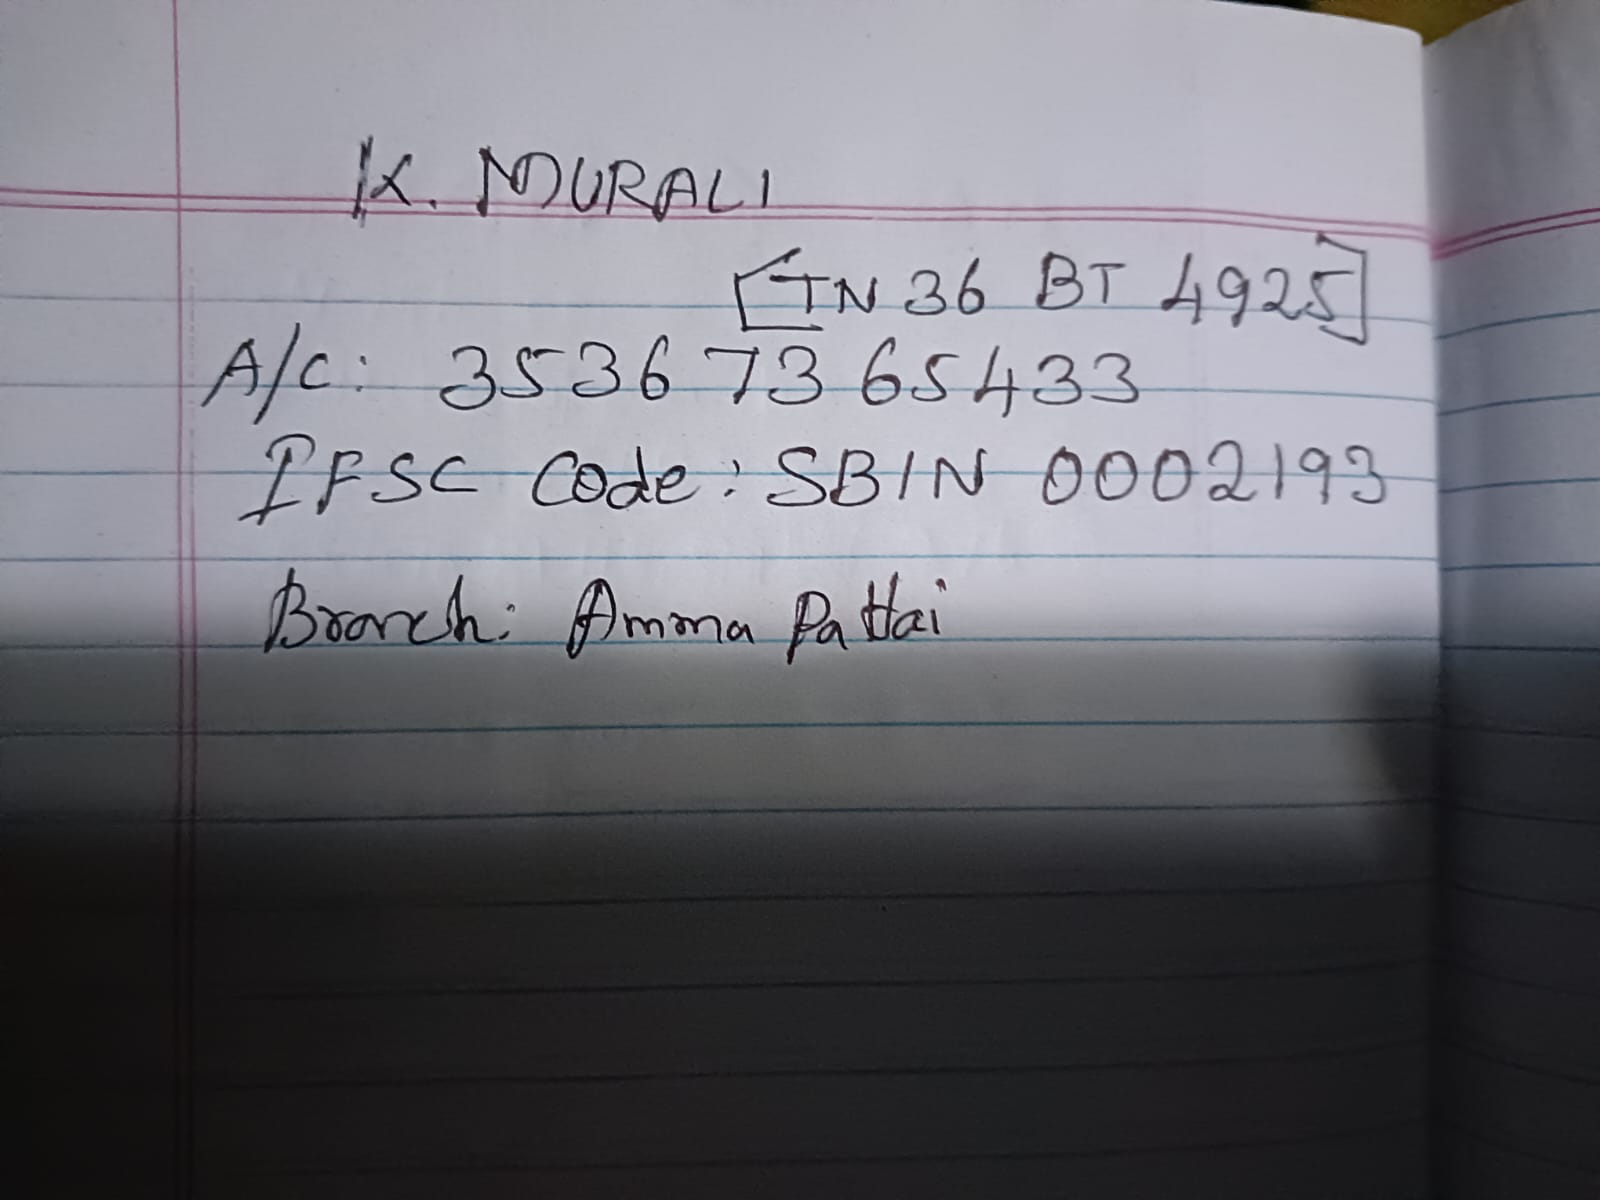 K. MURALI
[TN 36 BT 4925]
A/C: 3536 73 65433
IFSC Code: SBIN 0002193
Branch: Amma Pattai